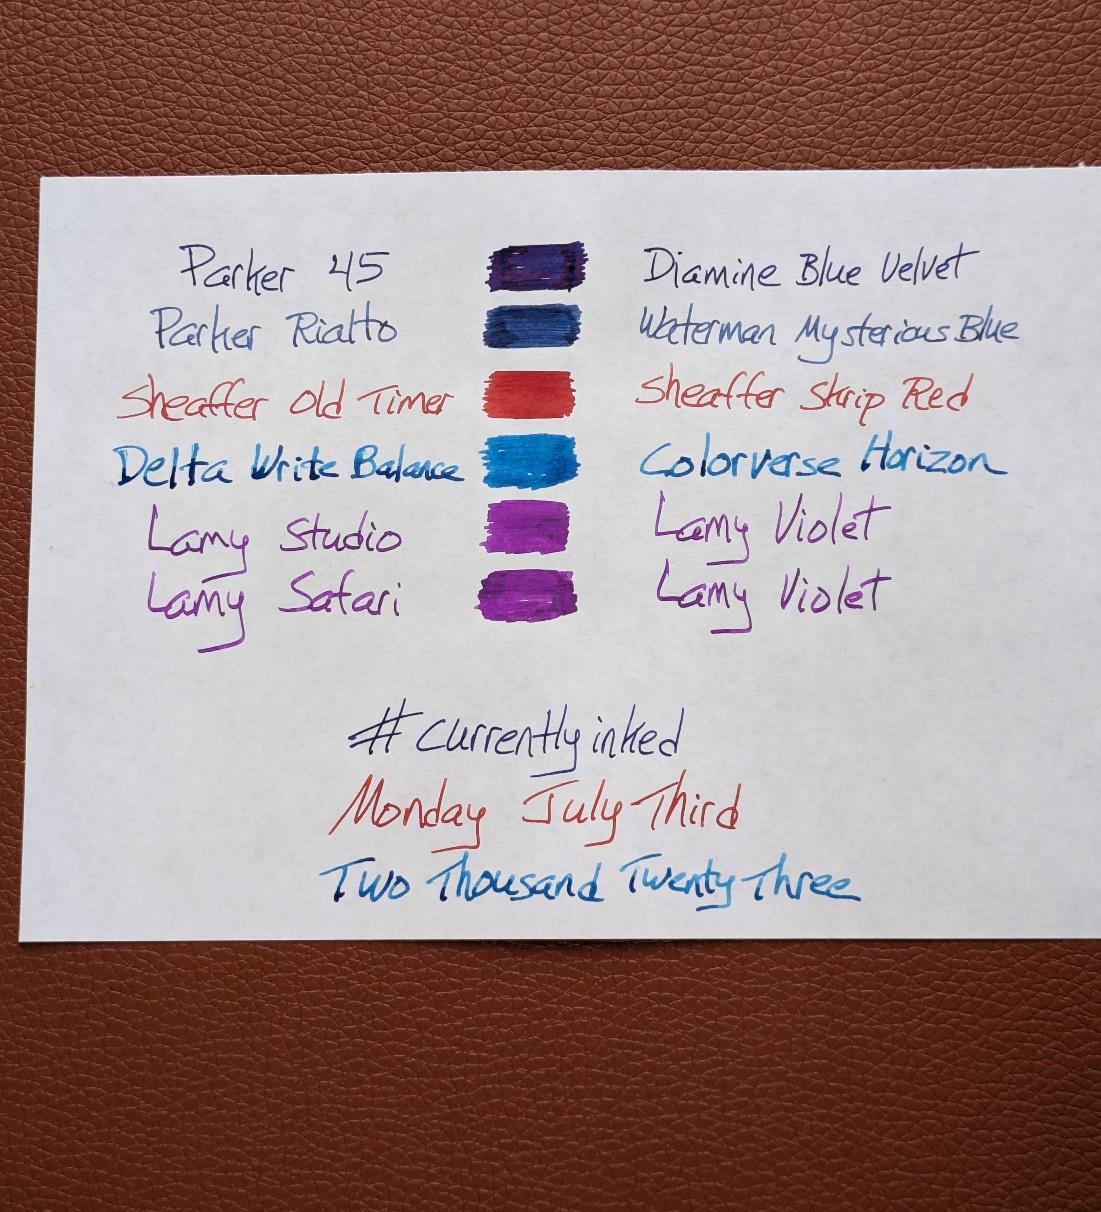 Parker 45 Diamine Blue Velvet
Parker Rialto Waterman Mysterious Blue
Sheaffer Old Timer Sheaffer Skrip Red
Delta Write Balance Colorverse Horizon
Lamy Studio Lamy Violet
Lamy Safari Lamy Violet
#currentlyinked
Monday July Third
Two Thousand Twenty Three